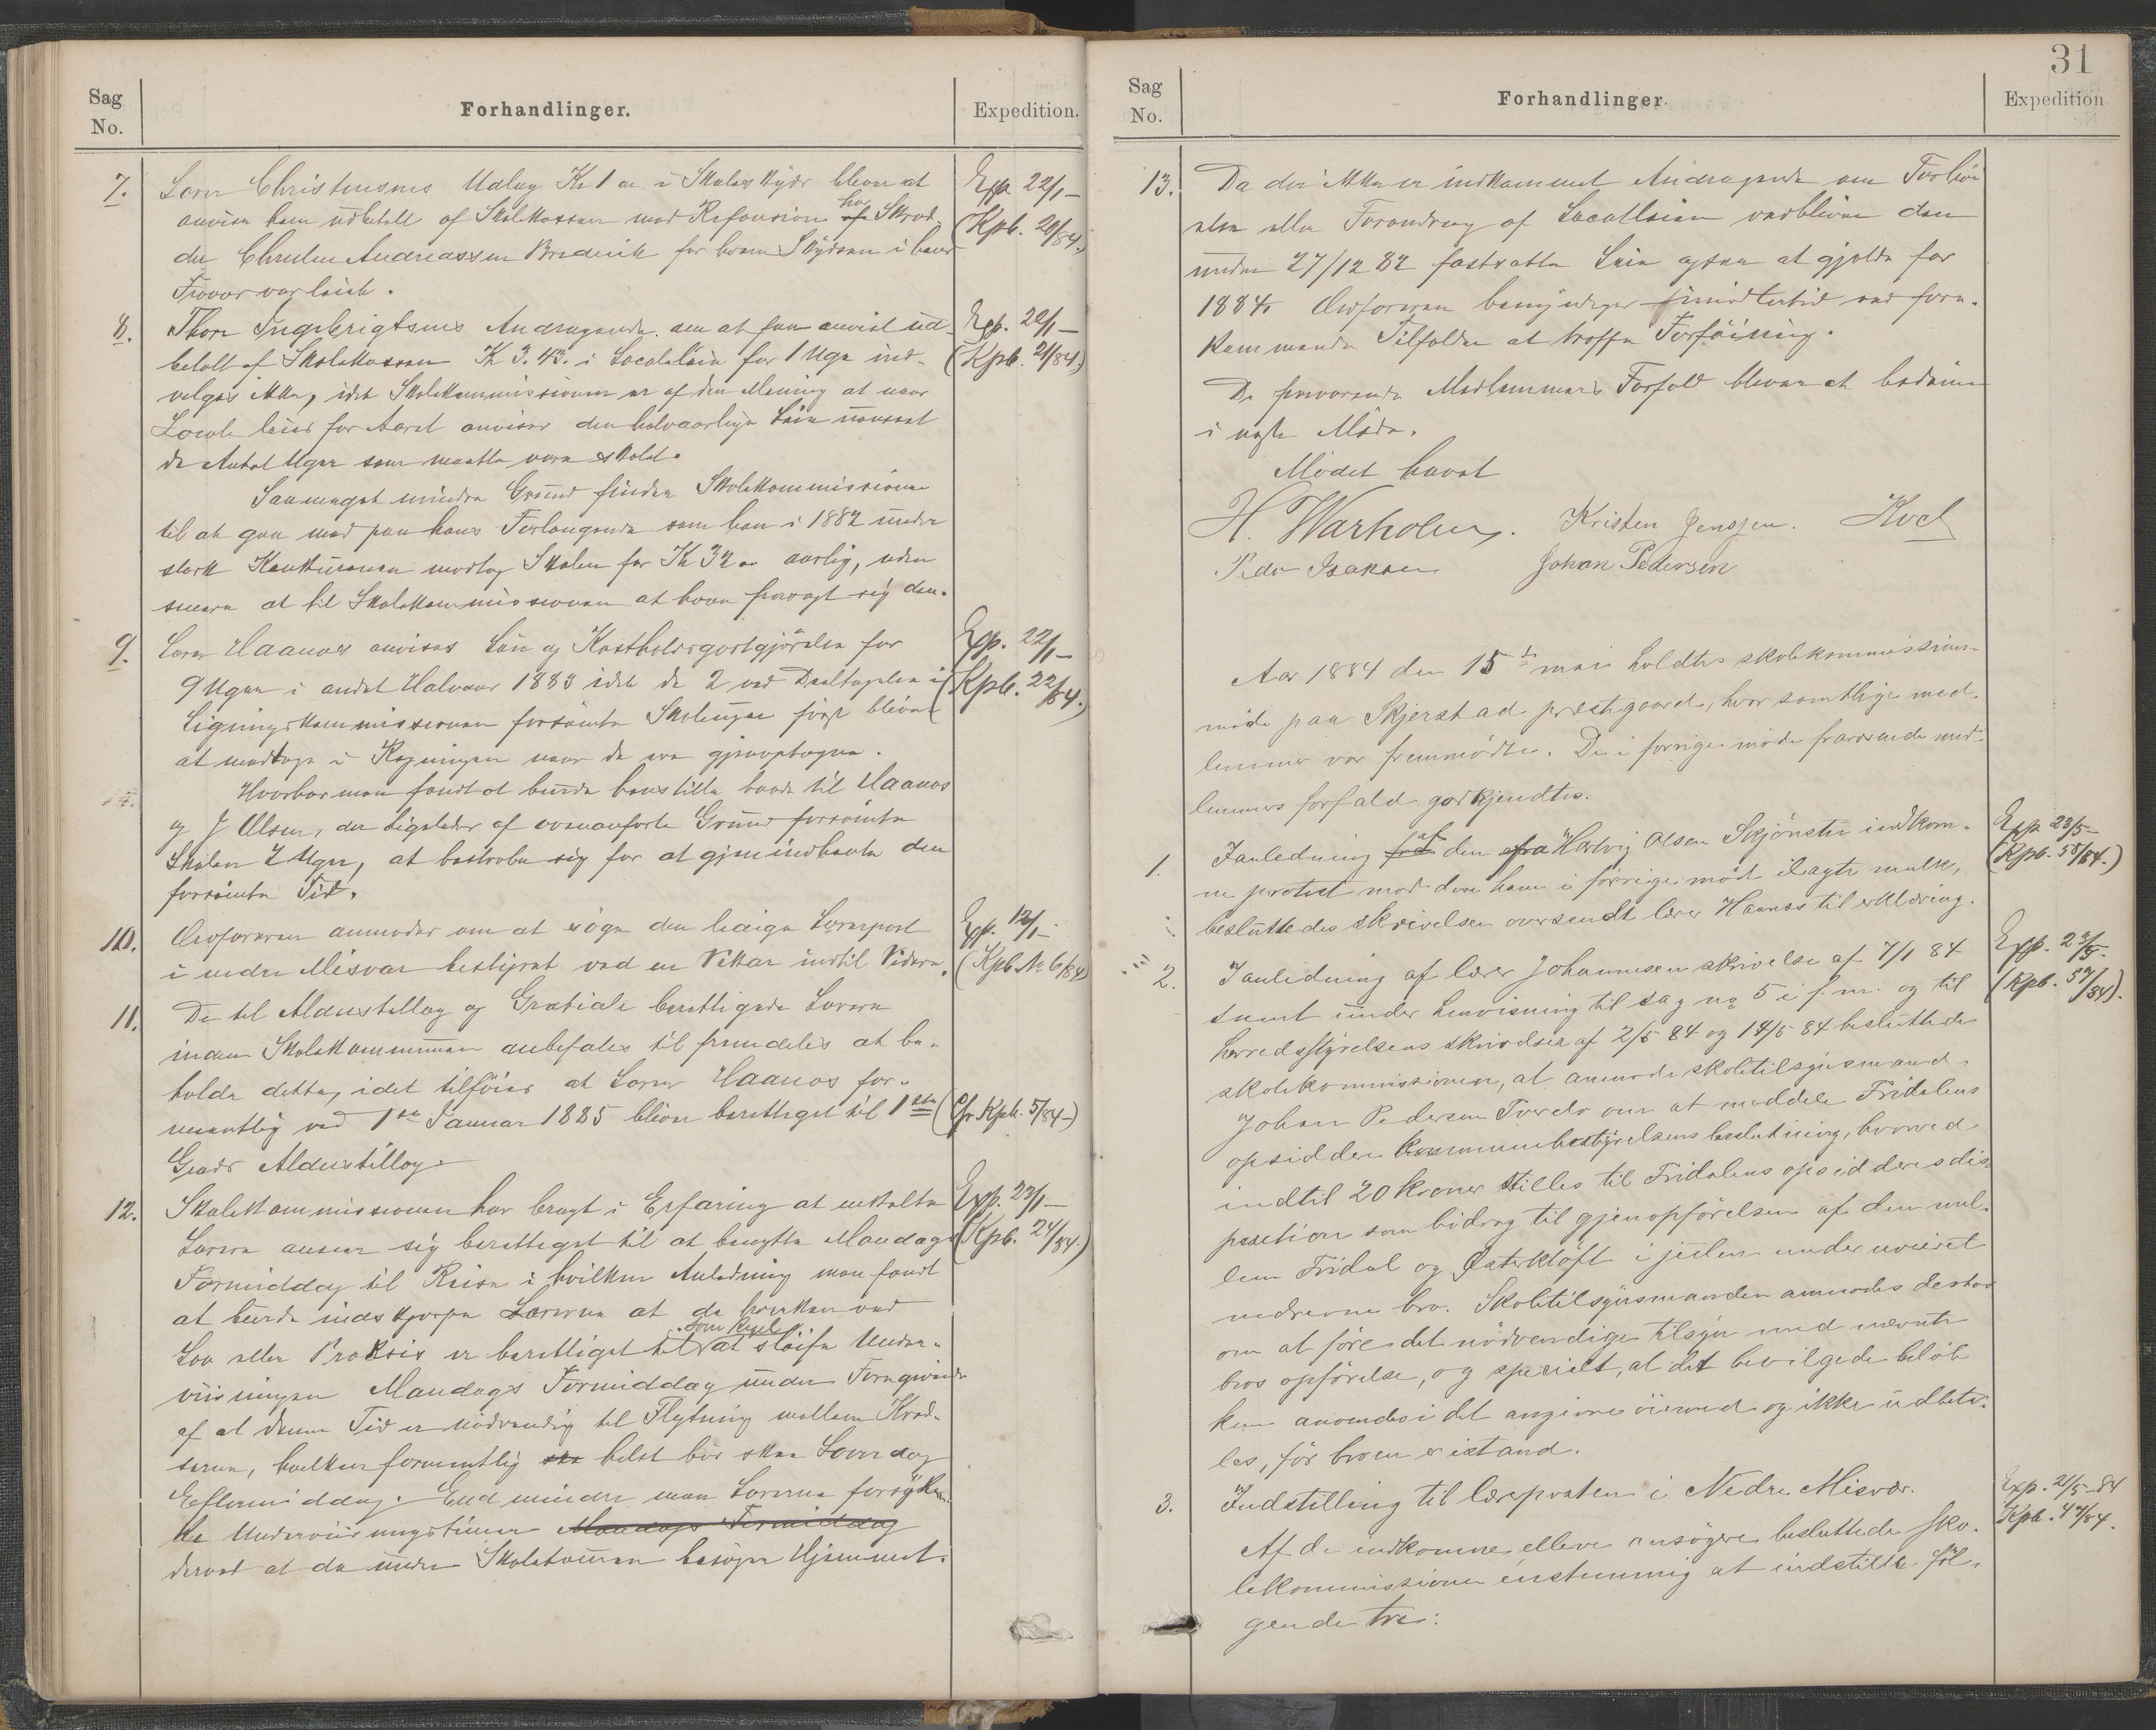 Sag No.
Forhandlinger.
Expedition.
7. Lærer Christensens Udlæg Kr 1 00 i Skoleskyds bliver at
anvise ham udbetalt af Skolekassen mod Refusion af hos Skræd-
der Christen Andreassen Brederik for hvem Skydsen i hans
Exp. 22/1 –
(Kpb. 20/84.)
8. Thore Ingebrigtsens Andragende om at faa anvist ud-
betalt af Skolekassen Kr 3.43. i Localeleie for 1 Uge ind-
vilges ikke, idet Skolekommissionen er af den Mening at naar
Locale leies for Aaret anvises den halvaarlige Leie uanseet
de Antal Uger som maatte være skolet.
Exp. 22/1 –
(Kpb. 21/84)
Saameget mindre Grund finder Skolekommissionen
til at gaa med paa hans Forlangende som han i 1882 under
stærk Konkurrence modtog Skolen for Kr 32 00 aarlig, uden
senere at til Skolekommissionen at have fravegt sig den.
9. Lærer Haanæs anvises Løn og Kostholdsgodtgjørelse for
9 Uger i andet Halvaar 1883 idet de 2 ved Deeltagelse i
Ligningskommissionen forsømte Skoleuger først bliver
at medtage i Regningen naar de ere gjenoptagne.
Exp. 22/1 –
(Kpb. 22/84.)
Hvorhos man fandt at burde henstille baade til Haanæs
og J Olsen, der ligeledes af ovenanførte Grund forsømte
Skolen 2 Uger, at bestræbe sig for at gjenindhente den
forsømte Tid.
10. Ordføreren anmoder om at søge den ledige Lærerpost
i nedre Misvær bestyret ved en Vikar indtil Videre.
Exp. 12/1 –
(Kpb. No 6/84)
11. De til Alderstillæg og Gratiale berettigede Lærere
inden Skolekommunen anbefales til fremdeles at be-
holde dette, idet tilføies at Lærer Haanæs for-
mentlig ved 1ste Januar 1885 bliver berettiget til 1ste
Grads Alderstillæg.
(Cfr. Kpb. 5/84 –)
12. Skolekommissionen har bragt i Erfaring at enkelte
Lærere anseer sig berettiget til at benytte Mandags
Formiddag til Reise i hvilken Anledning man fandt
at burde indskjærpe Lærerne at de hverken ved
Lov eller Praksis er berettiget til som Regel at sløife Under-
viisningen Mandags Formiddag under Foregivende
af at denne Tid er nødvendig til Flytning mellem Kred-
sene, hvilken formentlig ska helst bør skee Løverdag
Eftermiddag. End mindre maa Lærerne forsøke
de Underviisningstimer Mandags Formiddag
derved at de under Skoletouren besøger Hjemmet.
Exp. 23/1 –
(Kpb. 24/84.)
31
Sag No.
Forhandlinger.
Expedition
13. Da der ikke er indkommet Andragende om Forhøi
else eller Forandring af Localleien vedbliver den
under 27/12 82 fastsatte Leie ogsaa at gjælde for
1884. Ordføreren bemyndiges imidlertid ved fore-
kommende Tilfælde at træffe Forføining.
De fraværende Medlemmers Forfald bliver at bedømme
i næste Møde.
Mødet hævet
H. Warholm. Kristen Jenssen. Kvel
Peder Isaksen Johan Pedersen
Aar 1884 den 15de mai holdtes skolekommissions-
møde paa Skjerstad præstgaard, hvor samtlige med-
lemmer var fremmødte. De i forrige møde fraværende med-
lemmers forfald godkjendtes.
1. I anledning af den fra Hartvig Olsen Skjønstu indkom-
ne protest mod den ham i forrige møde ilagte mulkt,
besluttedes skrivelsen oversendt lærer Haanæs til erklæring.
Exp. 23/5 –
(Kpb. 58/84.)
2. I anledning af lærer Johannesens skrivelse af 7/1 84
samt under henvisning til sag no 5 i f. m. og til
herredsstyrelsens skrivelser af 2/5 84 og 14/5 84 besluttede
skolekommissionen, at anmode skoletilsynsmand
Johan Pedersen Tverelv om at meddele Fridalens
opsiddere kommunebestyrelsens beslutning, hvorved
indtil 20 kroner stilles til Fridalens opsidderes dis-
position som bidrag til gjenopførelsen af den mel-
lem Fridal og Østerkløft i julen under uveiret
nedrevne bro. Skoletilsynsmanden anmodes derhos
om at føre det nødvendige tilsyn med nævnte
bros opførelse, og specielt, at det bevilgede beløb
kun anvendes i det angivne øiemed og ikke udbeta-
les, før broen er istand.
Exp. 23/5 –
(Kpb. 57/84).
3. Indstilling til lærerposten i Nedre Misvær.
Af de indkomne elleve ansøgere besluttede sko-
lekommissionen enstemmig at indstille føl-
gende tre:
Exp. 21/5 – 84
Kpb. 47/84.